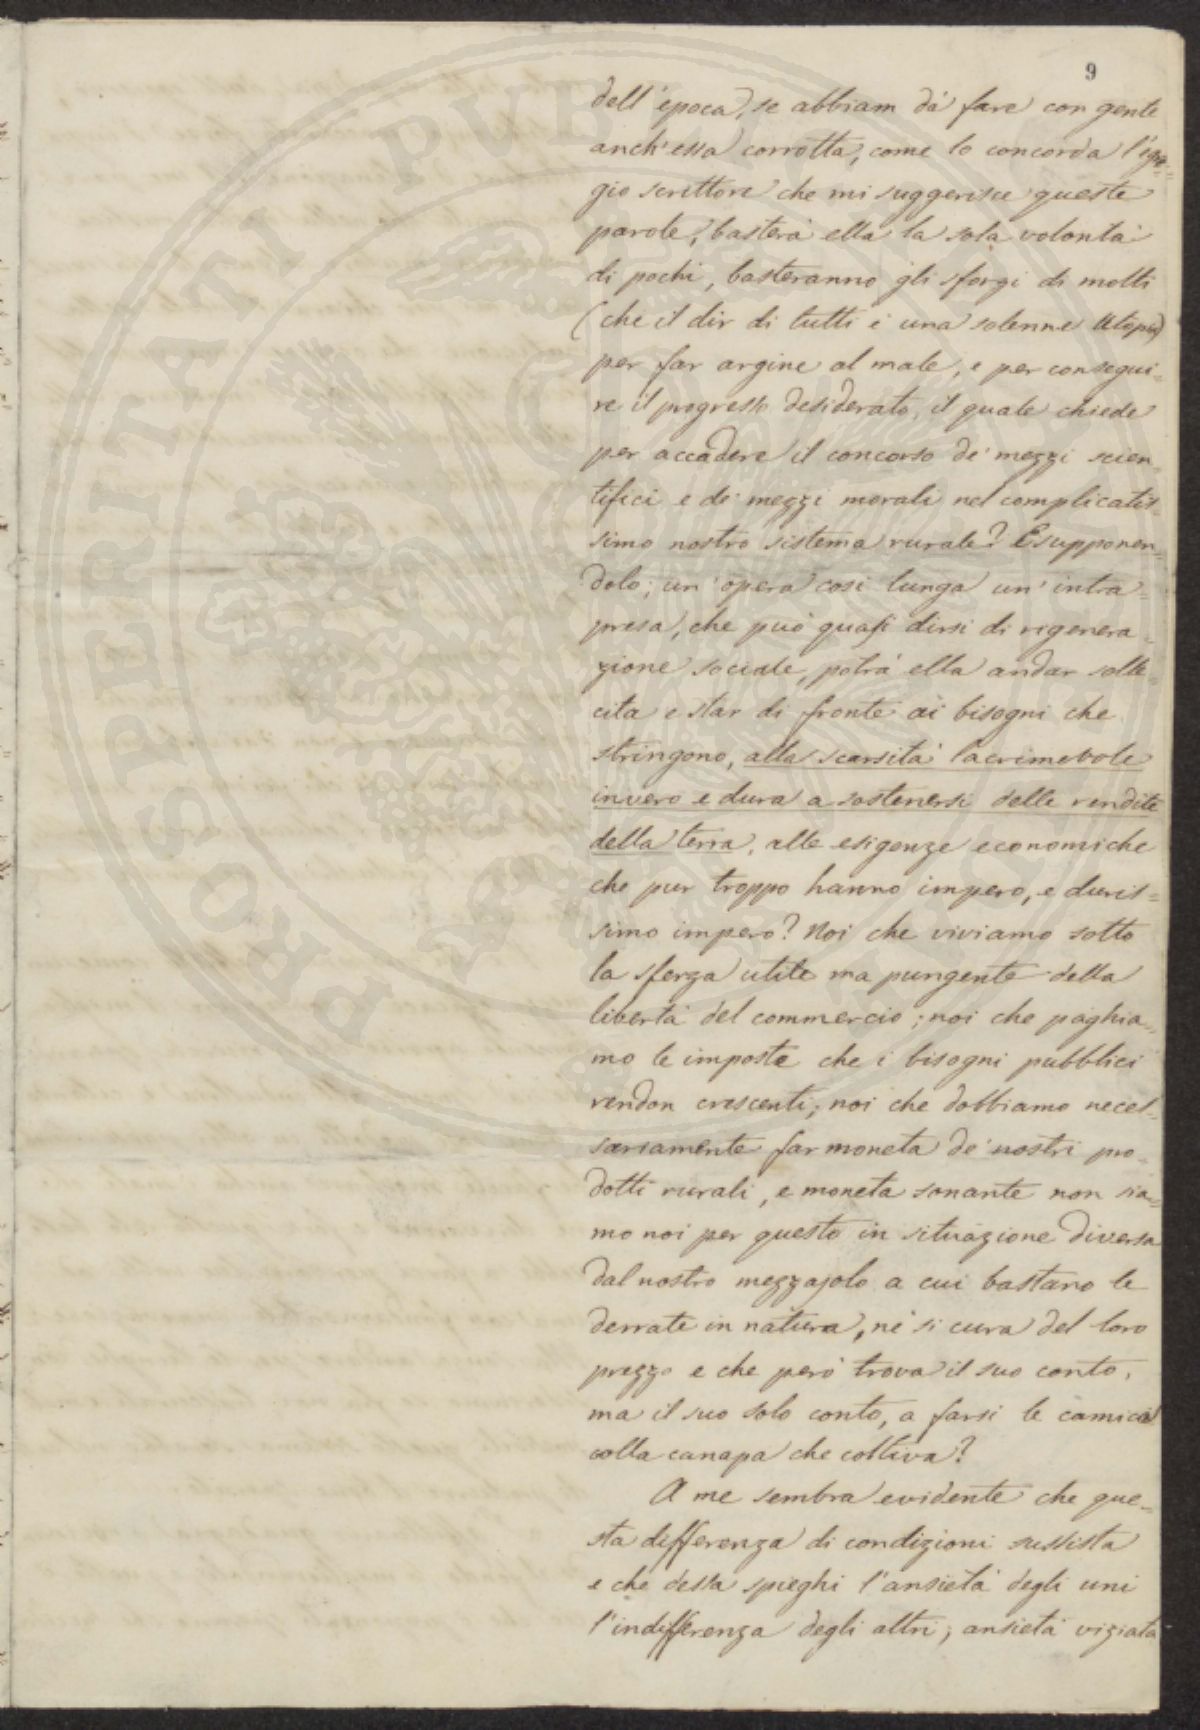 9
dell'epoca, se abbiam dà fare con gente
anch'essa corrotta, come lo concorda l'egre=
gio scrittore che mi suggerisce queste
parole, basterà ella la sola volontà
di pochi, basteranno gli sforzi di molti
(che il dir di tutti è una solenne Utopia)
per far argine al male, e per consegui=
re il progresso desiderato, il quale chiede
per accadere il concorso de' mezzi scien=
tifici e de' mezzi morali nel complicatis=
simo nostro sistema rurale? E supponen=
dolo; un'opera così lunga un'intra=
presa, che può quasi dirsi di rigenera=
zione sociale, potrà ella andar solle=
cita e star di fronte ai bisogni che
stringono, alla scarsità lacrimevole
invero e dura a sostenersi delle rendite
della terra, alle esigenze economiche
che pur troppo hanno impero, e duris=
simo impero? Noi che viviamo sotto
la sferza utile ma pungente della
libertà del commercio; noi che paghia=
mo le imposte che i bisogni pubblici
rendon crescenti; noi che dobbiamo neces=
sariamente far moneta de' nostri pro=
dotti rurali, e moneta sonante non sia=
mo noi per questo in situazione diversa
dal nostro mezzajolo a cui bastano le
derrate in natura, nè si cura del loro
prezzo e che però trova il suo conto,
ma il suo solo conto, a farsi le camicie
colla canapa che coltiva?
A me sembra evidente che que=
sta differenza di condizioni sussista
e che dessa spieghi l'ansietà degli uni
l'indifferenza degli altri; ansietà viziata
PROSPERITATI PUBLICAE